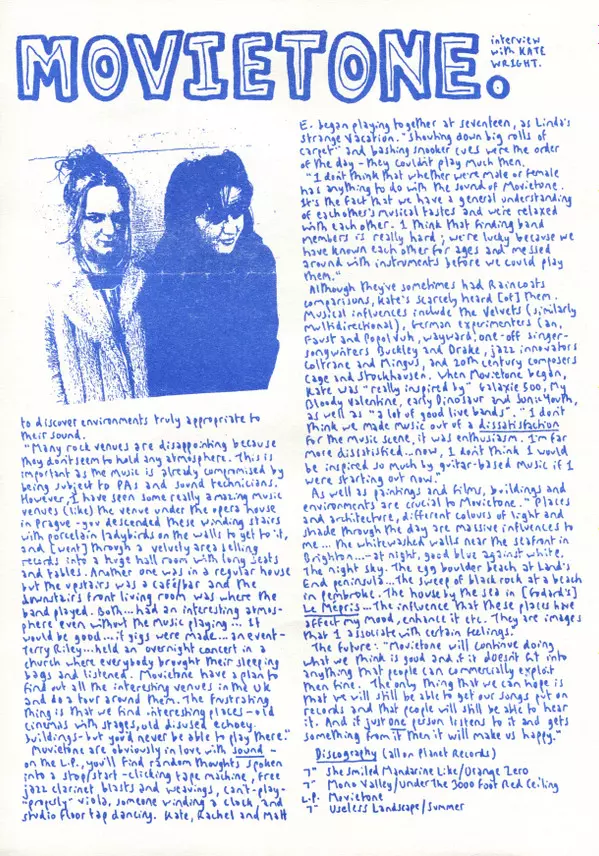 MOVIETONE.
interview
with KATE
WRIGHT.
to discover environments truly appropriate to
their sound.
"Many rock venues are disappointing because
they don't seem to hold any atmosphere. This is
important as the music is already compromised by
being subject to PAs and sound technicians.
However, I have seen some really amazing music
venues (like) the venue under the opera house
in Prague - you descended these winding stairs
with porcelain ladybirds on the walls to get to it,
and [went] through a velvety area selling
records into a huge hall room with long seats
and tables. Another one was in a regular house
but the upstairs was a café/bar and the
downstairs front living room was where the
band played. Both... had an interesting atmos-
phere even without the music playing... It
would be good... if gigs were made... an event -
Terry Riley... held an overnight concert in a
church where everybody brought their sleeping
bags and listened. Movietone have a plan to
find out all the interesting venues in the UK
and do a tour around them. The frustrating
thing is that we find interesting places - old
cinemas with stages, old disused echoey
buildings - but you'd never be able to play there."
Movietone are obviously in love with sound -
on the L.P., you'll find random thoughts spoken
into a stop/start-clicking tape machine, free
jazz clarinet blasts and weavings, can't-play-
"properly" viola, someone winding a clock, and
studio floor tap dancing. Kate, Rachel and Matt
E. began playing together at seventeen, as Linda's
Strange Vacation. "Shouting down big rolls of
carpet" and bashing snooker cues were the order
of the day - they couldn't play much then.
"I don't think that whether we're male or female
has anything to do with the sound of Movietone.
It's the fact that we have a general understanding
of each other's musical tastes and we're relaxed
with each other. I think that finding band
members is really hard; we're lucky because we
have known each other for ages and messed
around with instruments before we could play
them."
Although they've sometimes had Raincoats
comparisons, Kate's scarcely heard [of] them.
Musical influences include the Velvets (similarly
multidirectional), German experimenters Can,
Faust and Popol Vuh, wayward, one-off singer-
songwriters Buckley and Drake, jazz innovators
Coltrane and Mingus, and 20th century composers
Cage and Stockhausen. When Movietone began,
Kate was "really inspired by" Galaxie 500, My
Bloody Valentine, early Dinosaur and Sonic Youth,
as well as "a lot of good live bands". "I don't
think we made music out of a dissatisfaction
for the music scene, it was enthusiasm. I'm far
more dissatisfied... now, I don't think I would
be inspired so much by guitar-based music if I
were starting out now."
As well as paintings and films, buildings and
environments are crucial to Movietone. "Places
and architecture, different colours of light and
shade through the day are massive influences to
me... the whitewashed walls near the seafront in
Brighton... - at night, good blue against white.
The night sky. The egg boulder beach at Land's
End peninsula... The sweep of black rock at a beach
in Pembroke. The house by the sea in [Godard's]
Le Mépris... The influence that these places have
affect my mood, enhance it etc. They are images
that I associate with certain feelings."
The future: "Movietone will continue doing
what we think is good and if it doesn't fit into
anything that people can commercially exploit
then fine. The only thing that we can hope is
that we will still be able to get our songs put on
records and that people will still be able to hear
it. And if just one person listens to it and gets
something from it then it will make us happy."
Discography (all on Planet Records)
7" She Smiled Mandarine Like/Orange Zero
7" Mono Valley/Under The 3000 Foot Red Ceiling
L.P. Movietone
7" Useless Landscape/Summer